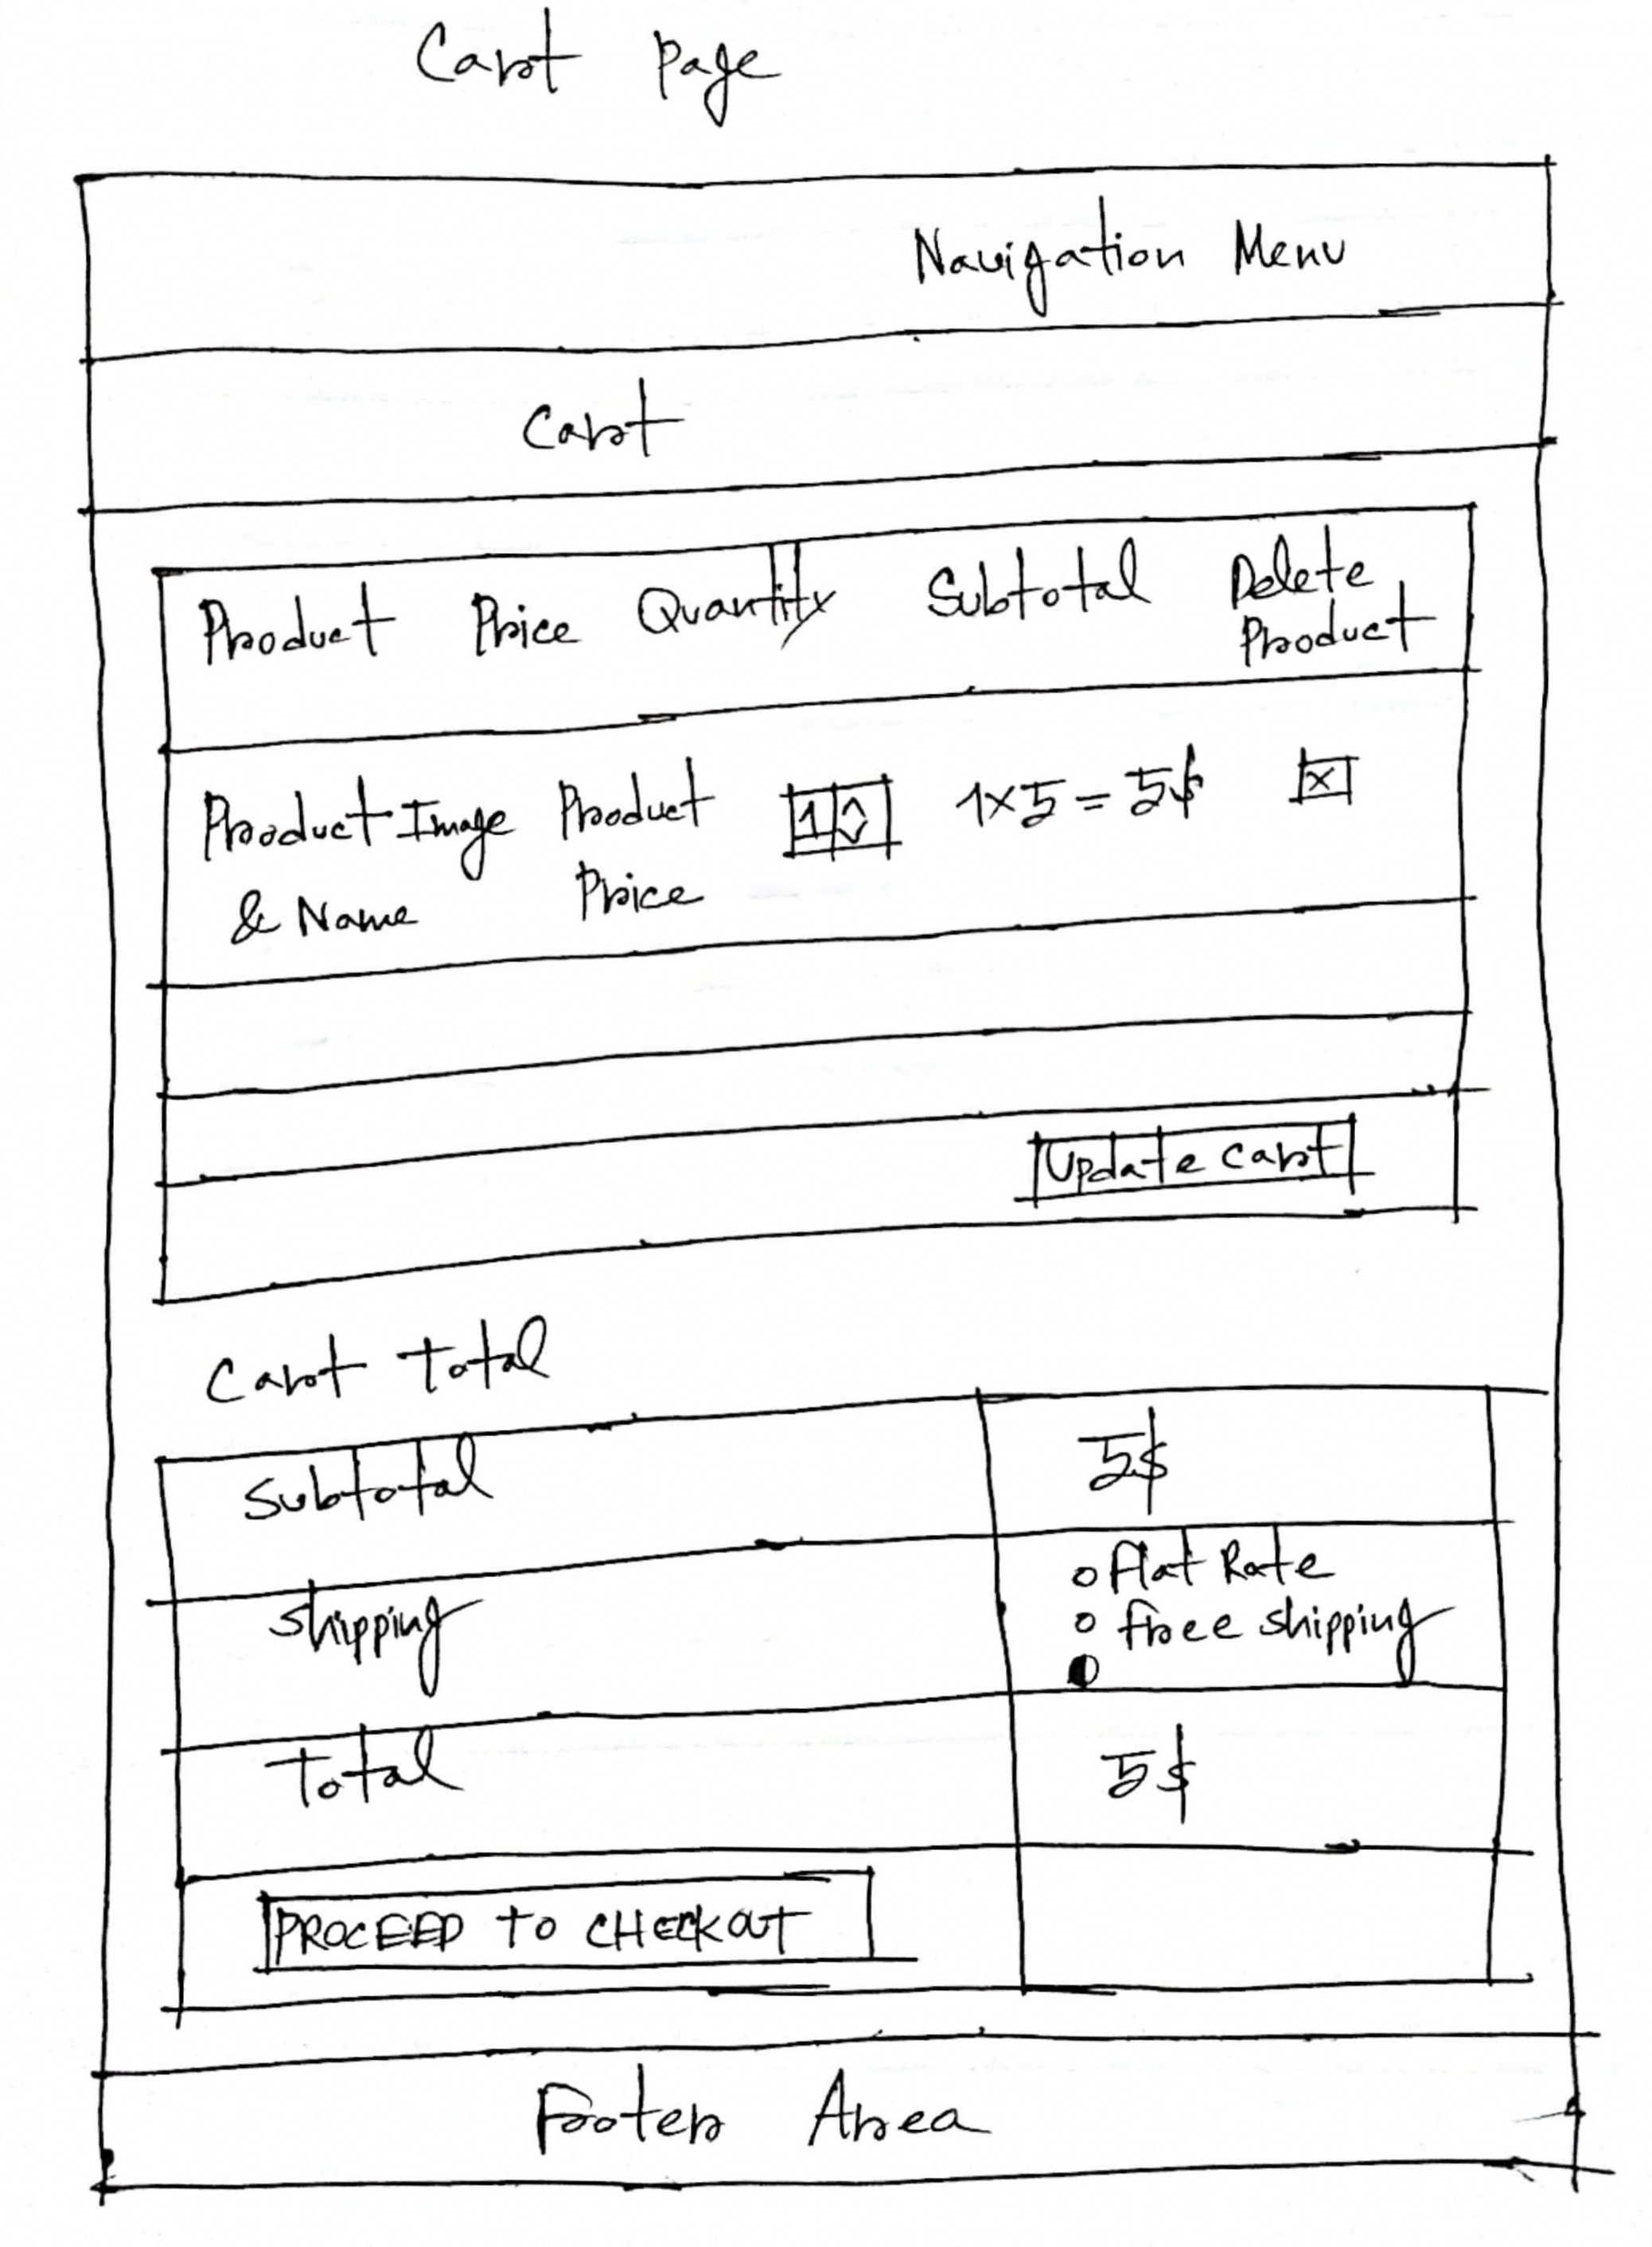 Cart Page
Navigation Menu
Cart
Product Price Quantity Subtotal Delete Product
Product Image & Name Product Price 1 1x5 = 5$ x
Update Cart
Cart Total
Subtotal 5$
Shipping
o Flat Rate
o free shipping
Total 5$
PROCEED TO CHECKOUT
Footer Area